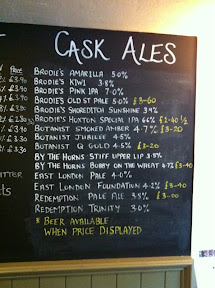 CASK ALES
BRODIE'S AMARILLA 5.0%
BRODIE'S KIWI 3.8%
BRODIE'S PINK IPA 7.0%
BRODIE'S OLD ST PALE 5.0% £3-60
BRODIE'S SHOREDITCH SUNSHINE 3.9%
BRODIE'S HOXTON SPECIAL IPA 6.6% £2-40 ½
BOTANIST SMOKED AMBER 4.7% £3-20
BOTANIST JUBILEE 4.5%
BOTANIST Q GOLD 4.5% £3-20
BY THE HORNS STIFF UPPER LIP 3.8%
BY THE HORNS BOBBY ON THE WHEAT 4.7% £3-40
EAST LONDON PALE 4.0%
EAST LONDON FOUNDATION 4.2% £3-40
REDEMPTION PALE ALE 3.8% £3-00
REDEMPTION TRINITY 3.0%
* BEER AVAILABLE
WHEN PRICE DISPLAYED
PRICE
£3.90
£3.40
£3.30